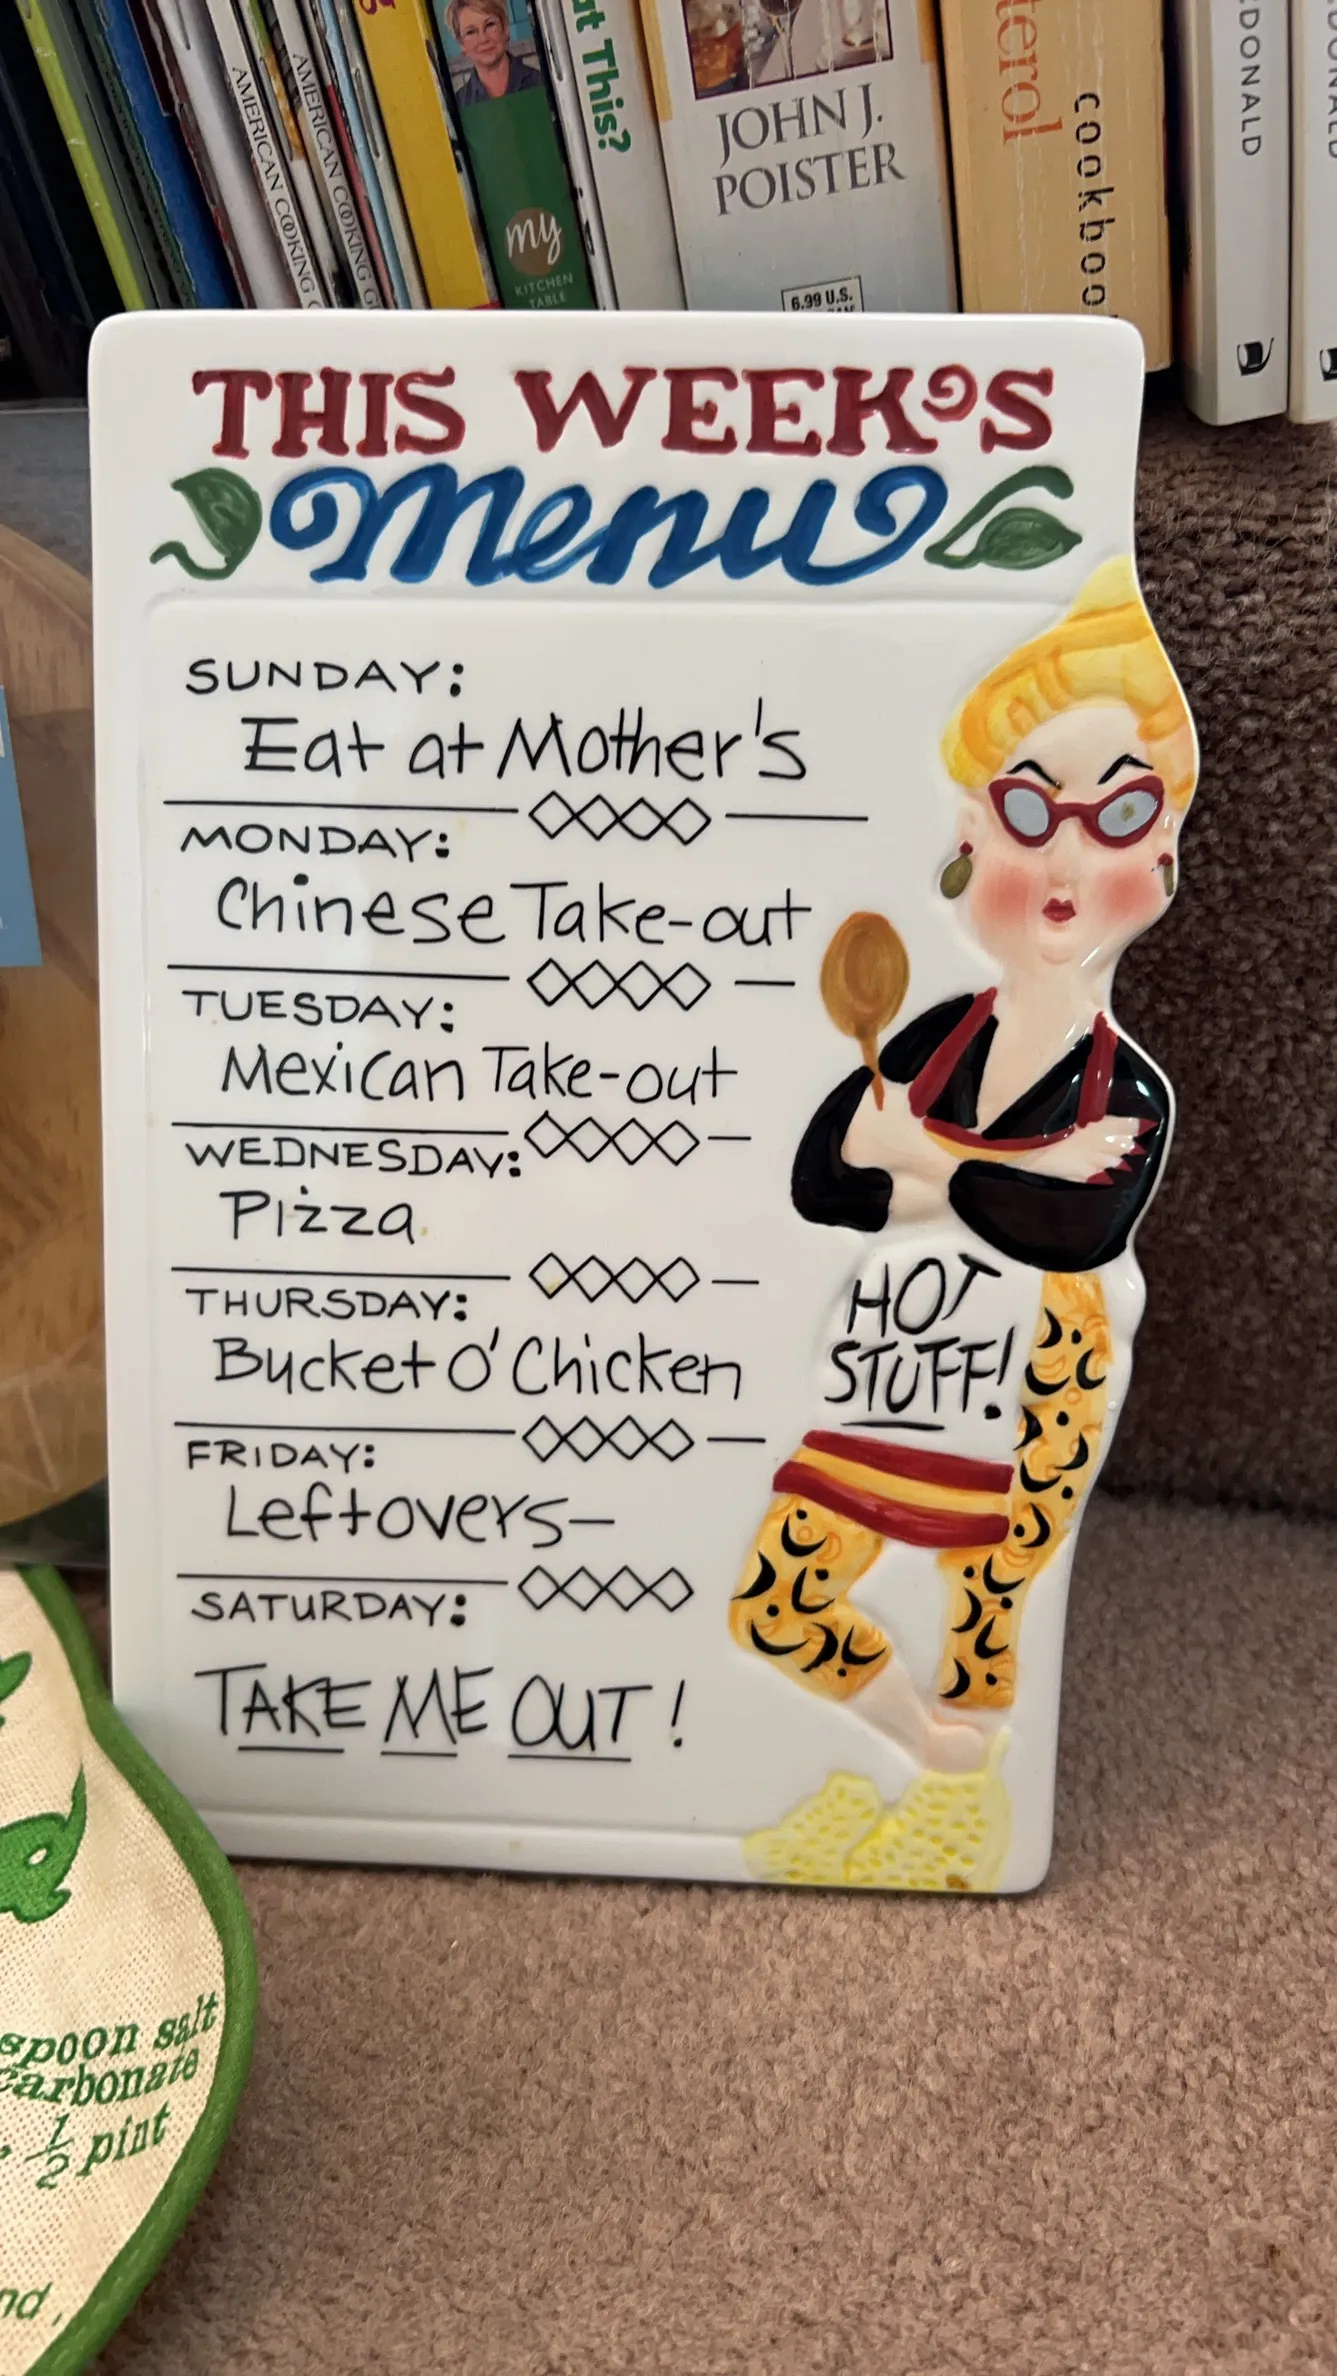 at This?
AMERICAN COOKING
AMERICAN COOKING
my
KITCHEN
TABLE
JOHN J.
POISTER
6.99 U.S.
cookboo
DONALD
THIS WEEK'S
Menu
SUNDAY:
Eat at Mother's
MONDAY:
Chinese Take-out
TUESDAY:
Mexican Take-out
WEDNESDAY:
Pizza
THURSDAY:
Bucket O' Chicken
FRIDAY:
Leftovers—
SATURDAY:
TAKE ME OUT!
HOT
STUFF!
spoon salt
carbonate
1/2 pint
nd,